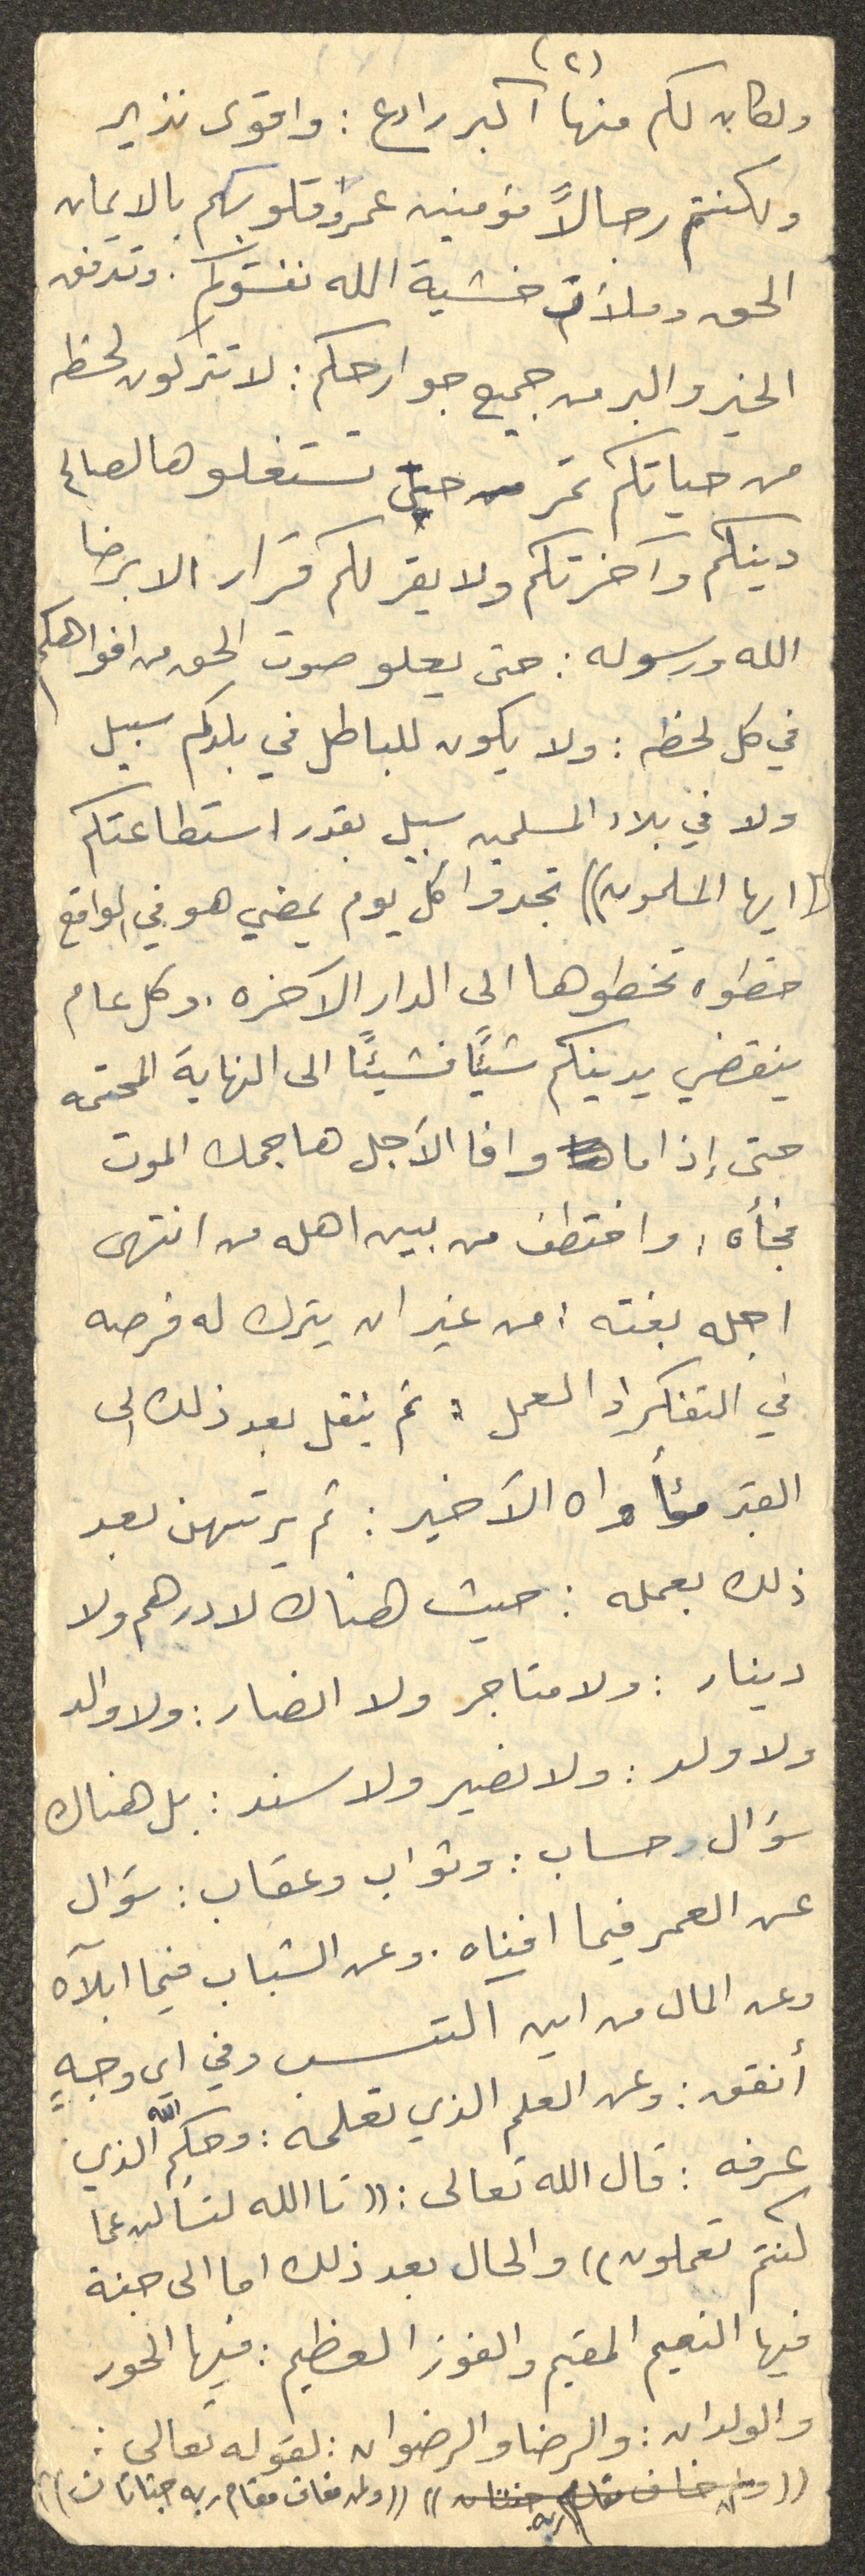 (٢)
ولكان لكم منها أكبر رادع : واقوى نذير
ولكنتم رجالاً مؤمنين عمروا قلوبكم بالايمان
الحق وملأت خشية الله نفوسكم . وتدفق
الخير والبر من جميع جوارحكم : لا تتركون لحظه
من حياتكم تمر تستغلوها لصالح
دينكم وآخرتكم ولا يقر لكم قرار الا برضا
الله ورسوله : حتى يعلو صوت الحق من افواهكم
في كل لحظه : ولا يكون للباطل في بلدكم سبيل
ولا في بلاد المسلمين سبيل بقدر استطاعتكم
((ايها المسلمون)) تجدوا كل يوم يمضي هو في الواقع
خطوه تخطوها الى الدار الآخره . وكل عام
ينقضي يدينكم شيئًا فشيئًا الى النهاية المحتمه
حتى إذا ما وافا الآجل هاجمك الموت
فجأه ، واختطف من بين اهله من انتهى
اجله بغته : من غير ان يترك له فرصه
في التفكر او العمل : ثم ينقل بعد ذلك الى
القبر مؤأواه الآخير : ثم يرتهن بعد
ذلك بعمله : حيث هناك لا درهم ولا
دينار : ولا متاجر ولا انصار : ولا والد
ولا ولد : ولا نصير ولا سند : بل هناك
سؤال وحساب : وثواب وعقاب : سؤال
عن العمر فيما افيناه . وعن الشباب فيما ابلآه
وعن المال من اين اكتسب وفي اي وجهٍ
أنفق : وعن العلم الذي تعلمه : وحكم الله الذي
عرفه : قال الله تعالى : ((تا الله لتسألن عما
كنتم تعملون)) والحال بعد ذلك اما الى جنة
فيها النعيم المقيم والفوز العظيم : فيها الحور
والولدان : والرضا والرضوان : لقوله تعالى :
((ولمن خاف مقام ربه جنتان)) ((ولمن خاف مقام ربه جنتان))